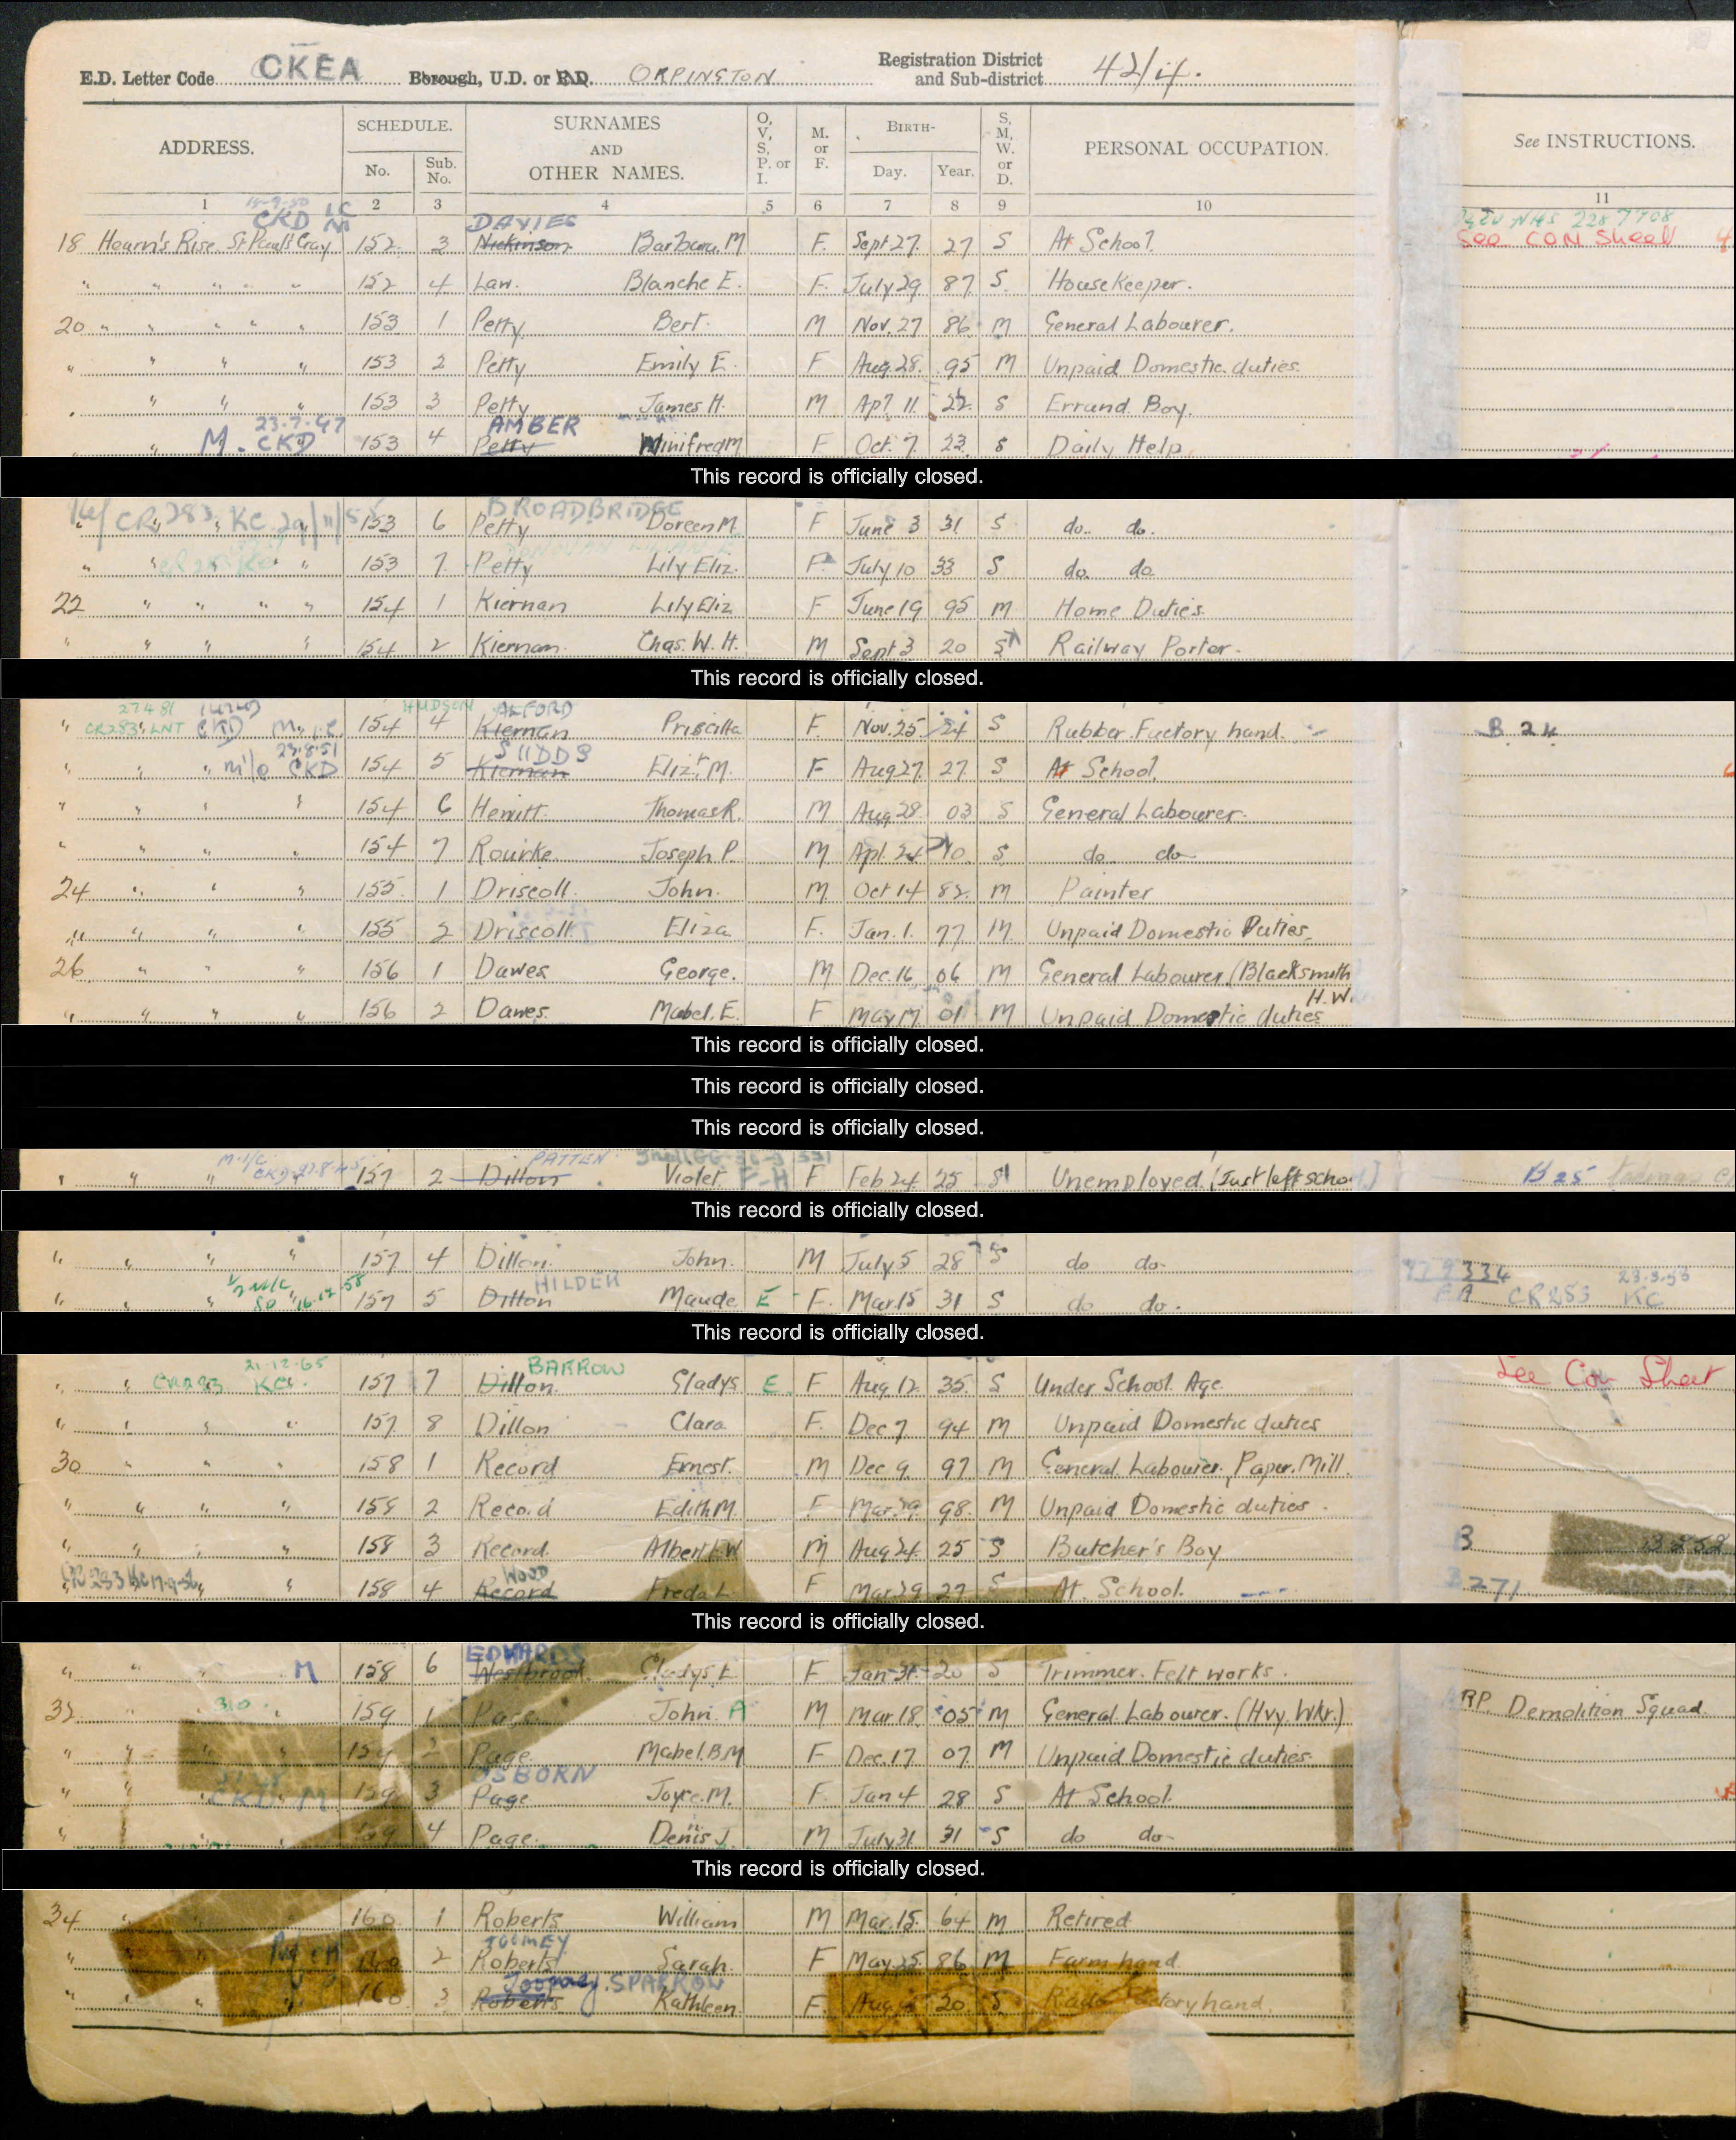 E.D. Letter Code CKEA Borough, U.D. or R.D. ORPINGTON Registration District and Sub-district 42/14.
ADDRESS. SCHEDULE. No. Sub. No. SURNAMES AND OTHER NAMES. O, V, S, P. or I. M. or F. BIRTH- Day. Year. S, M, W. or D. PERSONAL OCCUPATION. See INSTRUCTIONS.
1 2 3 4 5 6 7 8 9 10 11
CKD DAVIES
18 Hearn's Rise St Paul's Cray 152 3 Nickinson Barbara. M F. Sept 27. 27 S At School. See CON Sheet
" " " " " 152 4 Law. Blanche E. F. July 29 87 S. House Keeper.
20 " " " " " 153 1 Petty Bert. M Nov. 27 86 M General Labourer.
" " " " 153 2 Petty Emily E. F Aug. 28. 95 M Unpaid Domestic duties.
" " " " 153 3 Petty James H. M Apl 11. 22. S Errand Boy.
23.7.47 AMBER
" " M. CKD 153 4 Petty Winifred M F Oct. 7. 23. S Daily Help
This record is officially closed.
BROADBRIDGE
CR 283 KC 153 6 Petty Doreen M. F June 3 31 S do. do.
" " " 153 7 Petty Lily Eliz. F July 10 33 S do. do
22 " " " " 154 1 Kiernan Lily Eliz F June 19 95 M Home Duties
" " " " 154 2 Kiernan Chas. W. H. M Sept 3 20 S Railway Porter.
This record is officially closed.
27 4 81 HUDSON ALFORD
" CR283 LNT CKD M 154 4 Kiernan Priscilla F Nov. 25 24 S Rubber Factory hand. B 24
23.8.51 SUDDS
" " " CKD 154 5 Kiernan Eliz.th M. F Aug 27 27 S At School.
" " " " 154 6 Hewitt Thomas R. M Aug 28. 03 S General Labourer.
" " " " 154 7 Rourke Joseph P. M Apl. 24 10 S do do
24 " " " 155 1 Driscoll John. M Oct 14 82. M Painter
" " " " 155 2 Driscoll Eliza F. Jan. 1. 77 M Unpaid Domestic Duties,
26 " " " 156 1 Dawes George. M Dec. 16 06 M General Labourer (Blacksmith
H.W.
" " " " 156 2 Dawes Mabel. E. F May 17 01 M Unpaid Domestic duties
This record is officially closed.
This record is officially closed.
This record is officially closed.
PATTEN
" " " CKD 157 2 Dillon Violet F Feb 24 25 S Unemployed (Just left school) B 25
This record is officially closed.
" " " " 157 4 Dillon John. M July 5 28 S do do
16.12.58 HILDER 23.3.53
" " " 157 5 Dillon Maude E F. Mar 15 31 S do do. CR 283 KC
This record is officially closed.
21-12-65 BARROW
" " CR283 KC 157 7 Dillon. Gladys E F Aug 12 35 S Under School Age. See Con Sheet
" " " " 157 8 Dillon Clara F. Dec 7 94 M Unpaid Domestic duties
30 " " " 158 1 Record Ernest. M Dec 9 97 M General Labourer. Paper. Mill.
" " " " 158 2 Record Edith M. F Mar 98. M Unpaid Domestic duties.
" " " " 158 3 Record. Albert W M Aug 24. 25 S Butcher's Boy B
WOOD
CR 283 158 4 Record Freda L. F Mar 29 27 S At. School. 271
This record is officially closed.
EDWARDS
" " " M 158 6 Westbrook. Gladys E. F Jan 31 20 S Trimmer. Felt works.
32 " " " 159 1 Page John. A M Mar 18. 05 M General. Labourer. (Hvy. Wkr.) ARP. Demolition Squad.
" " " " 159 2 Page Mabel. B. M F Dec. 17 07. M Unpaid Domestic duties
OSBORN
" CKD M 159 3 Page Joyce. M. F. Jan 4 28 S At School.
" 159 4 Page. Denis J. M July 31 31 S do do
This record is officially closed.
34 " 160 1 Roberts William M Mar. 15. 64 M Retired
TOOMEY
" 160 2 Roberts Sarah. F May 25 86 M Farm hand.
Toomey. SPARROW
" " " 160 3 Roberts Kathleen. F. Aug 20 S factory hand.